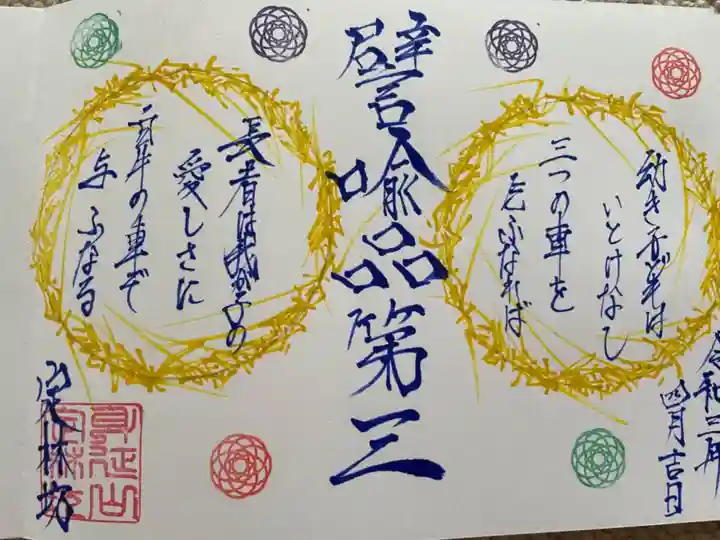 令和三年
四月吉日
幼き
いとけなし
三つの車を
乞ふなれば
譬喩品第三
長者は我が子の
愛しさに
白牛の車ぞ
与ふなる
定林坊
身延山
定林坊